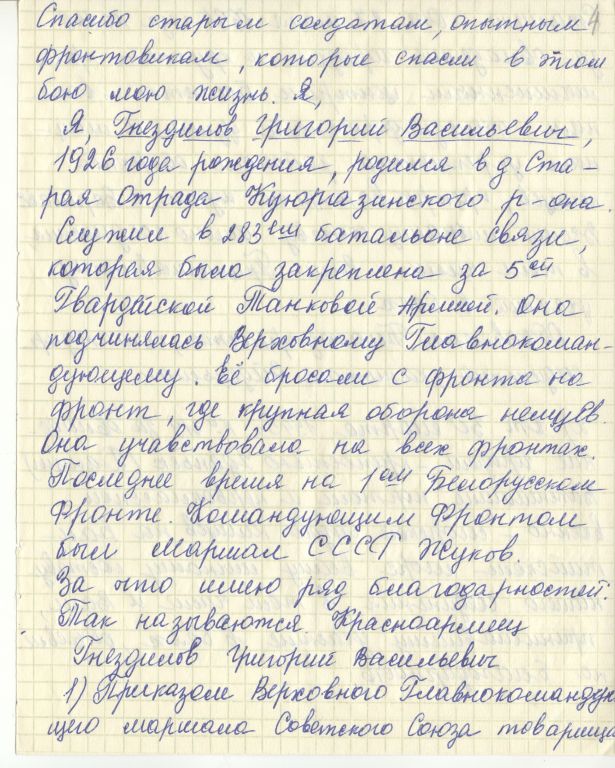 4
Спасибо старым солдатам, опытным
фронтовикам, которые спасли в этом
бою мою жизнь. Я,
Я, Гнездилов Григорий Васильевич,
1926 года рождения, родился в д. Ста-
рая Отрада Куюргазинского р-она.
Служил в 283ем батальоне связи,
которая была закреплена за 5ой
Гвардейской Танковой Армией. Она
подчинялась Верховному Главнокоман-
дующему. Её бросали с фронта на
фронт, где крупная оборона немцев.
Она учавствовала на всех фронтах.
Последнее время на 1ом Белорусском
Фронте. Командующим Фронтом
был маршал СССР Жуков.
За что имею ряд благодарностей.
Так называются Красноармеец
Гнездилов Григорий Васильевич
1) Приказом Верховного Главнокоманду
щего маршала Советского Союза товарища